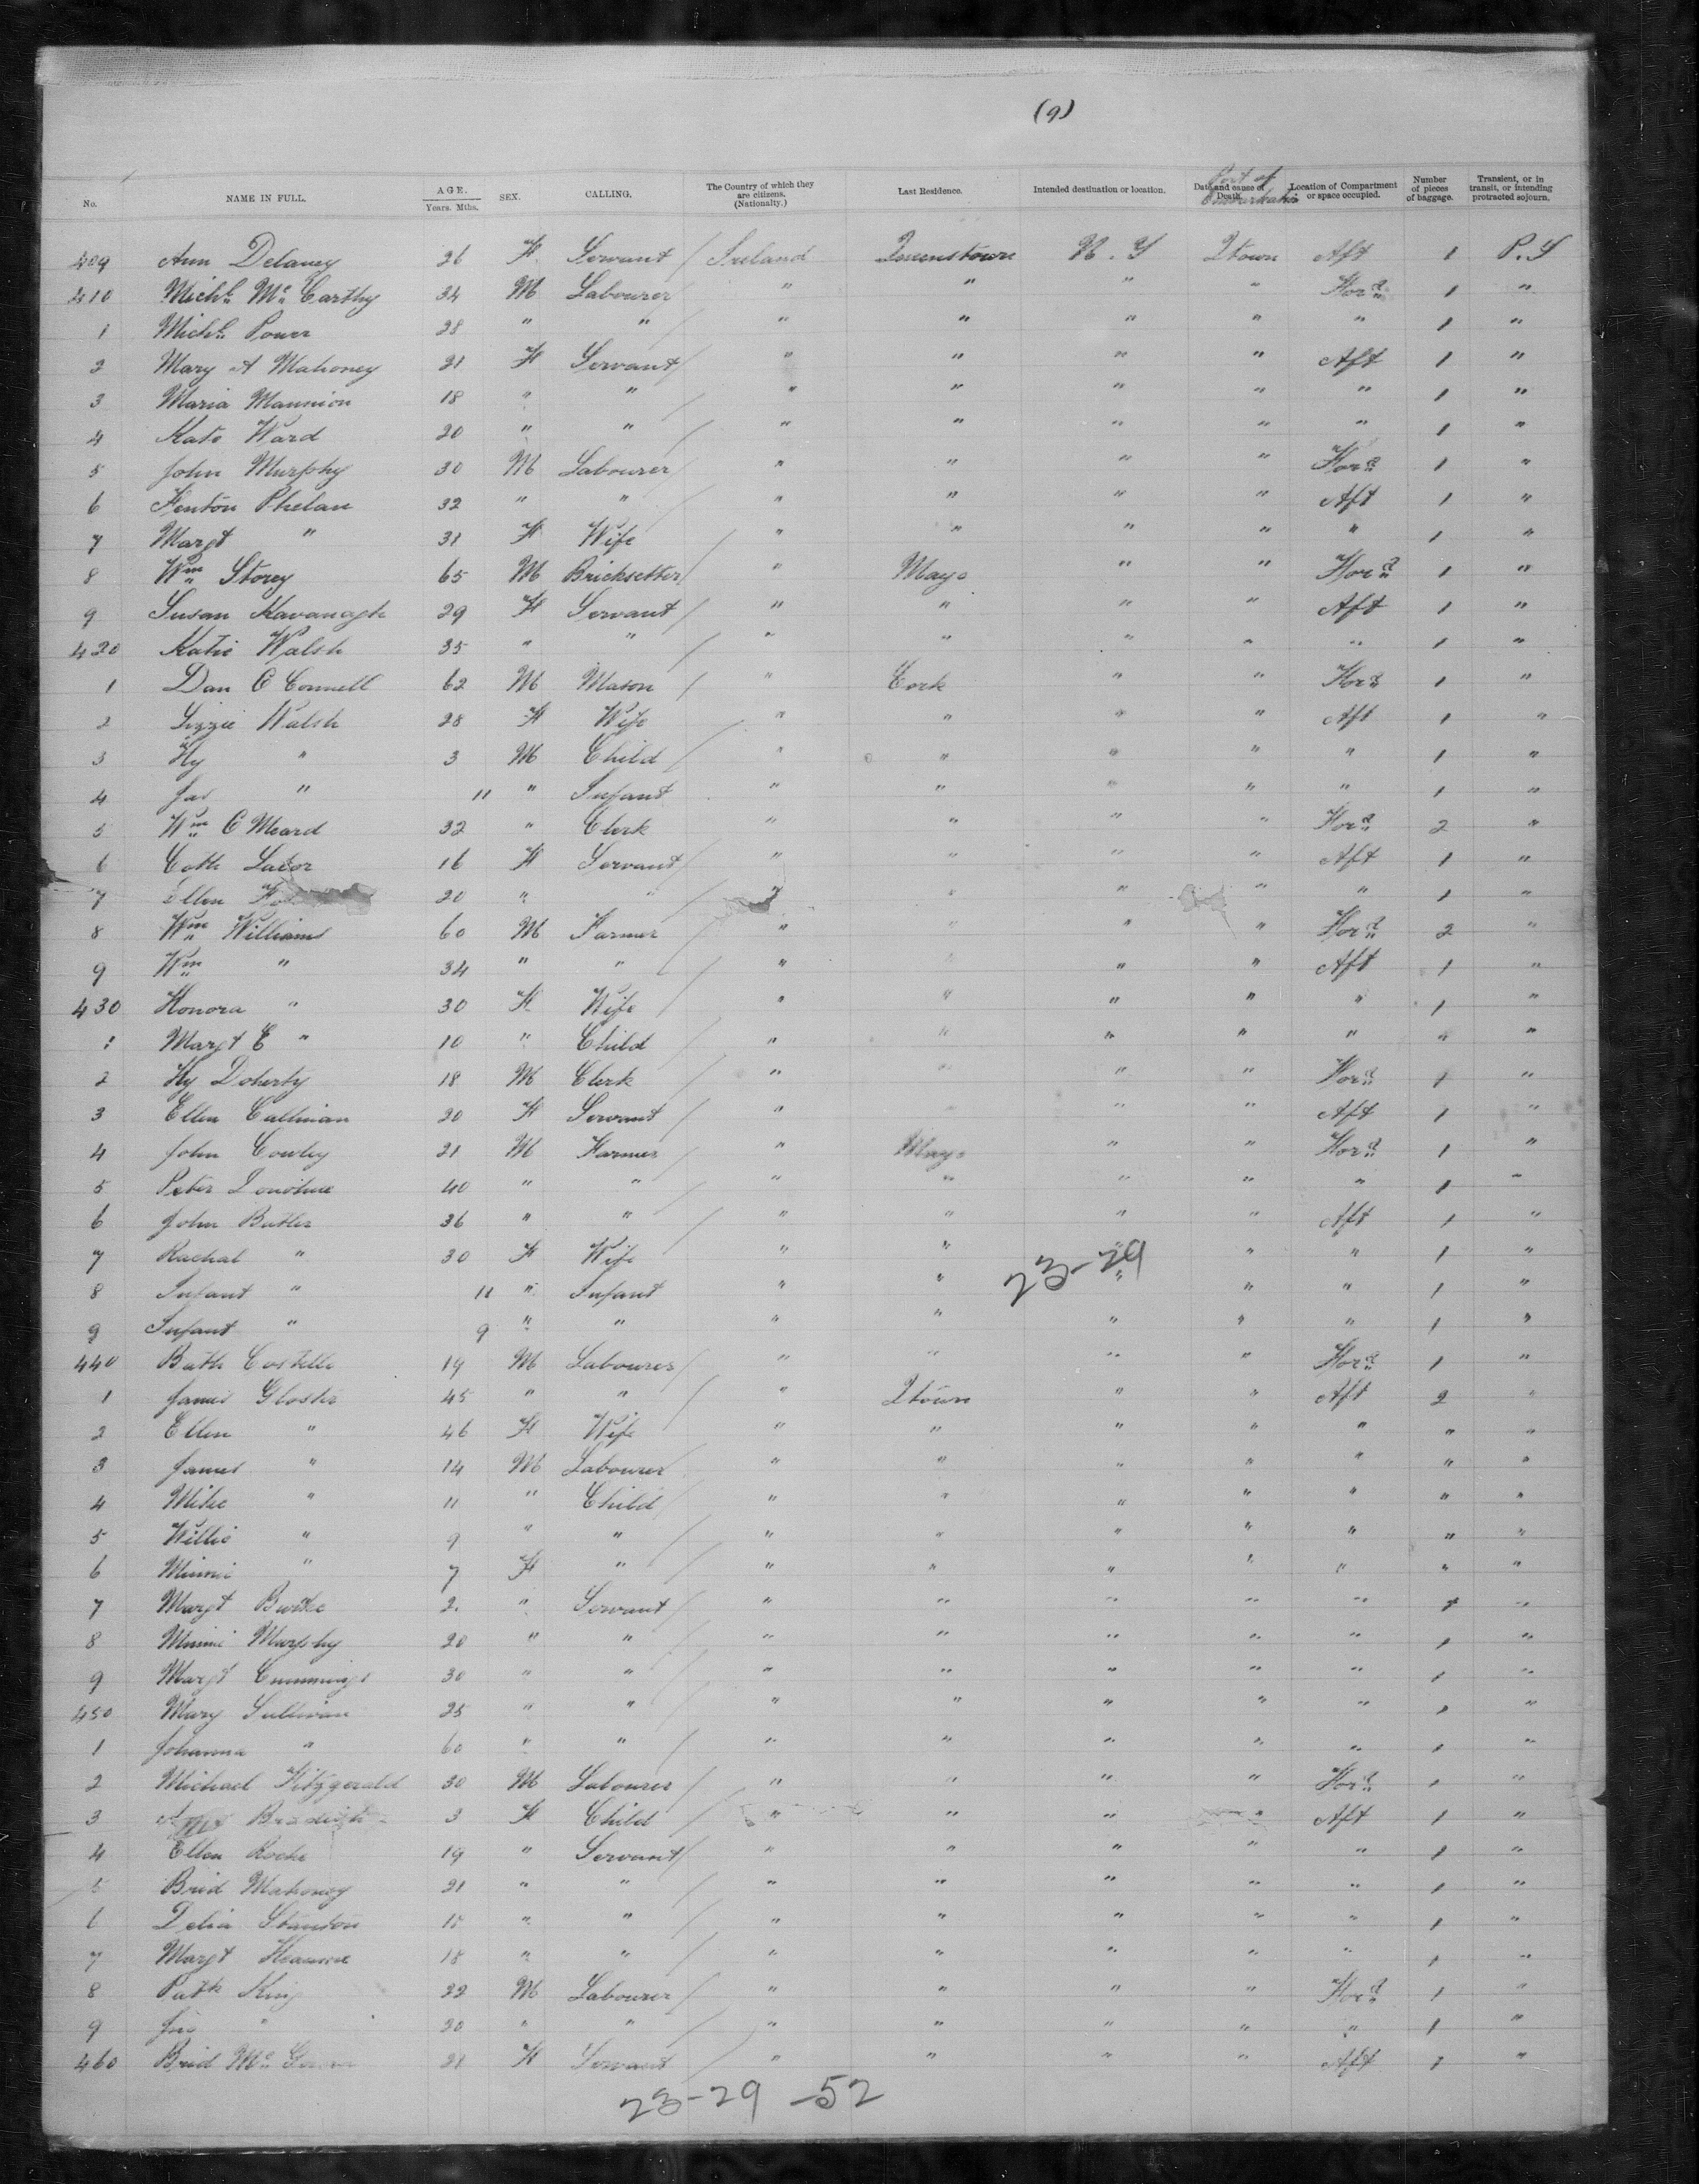 (9)
No. NAME IN FULL. AGE. Years. Mths. SEX. CALLING. The Country of which they are citizens. (Nationalty.) Last Residence. Intended destination or location. Date and cause of Death. Port of Embarkation Location of Compartment or space occupied. Number of pieces of baggage. Transient, or in transit, or intending protracted sojourn.
409 Ann Delaney 26 F. Servant / Ireland Queenstown N.Y Qtown Aft 1 P.S
410 Michl Mc Carthy 34 M Labourer / " " " " For'd 1 "
1 Michl Power 28 " " / " " " " " 1 "
2 Mary A Mahoney 21 F Servant / " " " " Aft 1 "
3 Maria Mannion 18 " " / " " " " " 1 "
4 Kate Ward 20 " " / " " " " " 1 "
5 John Murphy 30 M Labourer / " " " " For'd 1 "
6 Fenton Phelan 32 " " / " " " " Aft 1 "
7 Margt " 31 F Wife / " " " " " 1 "
8 Wm Storey 65 M Bricksetter / " Mayo " " For'd 1 "
9 Susan Kavanagh 29 F Servant / " " " " Aft 1 "
420 Katie Walsh 35 " " / " " " " " 1 "
1 Dan O Connell 62 M Mason / " Cork " " For'd 1 "
2 Lizzie Walsh 28 F Wife / " " " " Aft 1 "
3 Hy " 3 M Child / " " " " " 1 "
4 Jas " 11 " Infant " " " " " 1 "
5 Wm O Meard 32 " Clerk / " " " " For'd 2 "
6 Cath Lalor 16 F Servant / " " " " Aft 1 "
7 Ellen 20 " " / " " " " " 1 "
8 Wm Williams 60 M Farmer / " " " " For'd 2 "
9 Wm " 34 " " / " " " " Aft 1 "
430 Honora " 30 F Wife / " " " " " 1 "
1 Margt E " 10 " Child / " " " " " " "
2 Hy Doherty 18 M Clerk / " " " " For'd 1 "
3 Ellen Callinan 20 F Servant / " " " " Aft 1 "
4 John Cowley 21 M Farmer / " Mayo " " For'd 1 "
5 Peter Donohue 40 " " / " " " " " 1 "
6 John Butler 36 " " / " " " " Aft 1 "
7 Rachal " 30 F Wife / " " " " " 1 "
23-29
8 Infant " 11 " Infant " " " " " 1 "
9 Infant " 9 " " " " " " " 1 "
440 Bath Costello 19 M Labourer / " " " " For'd 1 "
1 James Gloster 45 " " / " Qtown " " Aft 2 "
2 Ellen " 46 F Wife / " " " " " " "
3 James " 14 M Labourer " " " " " " "
4 Mike " 11 " Child / " " " " " " "
5 Willie " 9 " " / " " " " " " "
6 Minnie " 7 F " / " " " " " " "
7 Margt Burke 2. " Servant / " " " " " 1 "
8 Minnie Murphy 20 " " / " " " " " 1 "
9 Margt Cummings 30 " " / " " " " " 1 "
450 Mary Sullivan 25 " " / " " " " " 1 "
1 Johanna " 60 " " / " " " " " 1 "
2 Michael Fitzgerald 30 M Labourer / " " " " For'd 1 "
3 3 F Child / " " " " Aft 1 "
4 Ellen Roche 19 " Servant / " " " " " 1 "
5 Brid Mahoney 21 " " / " " " " " 1 "
6 Delia Stanton " " / " " " " " 1 "
7 Margt 18 " " / " " " " " 1 "
8 Patk King 22 M Labourer / " " " " For'd 1 "
9 Jno " 20 " " / " " " " " 1 "
460 Brid Mc F Servant / " " " " Aft 1 "
23-29 -52